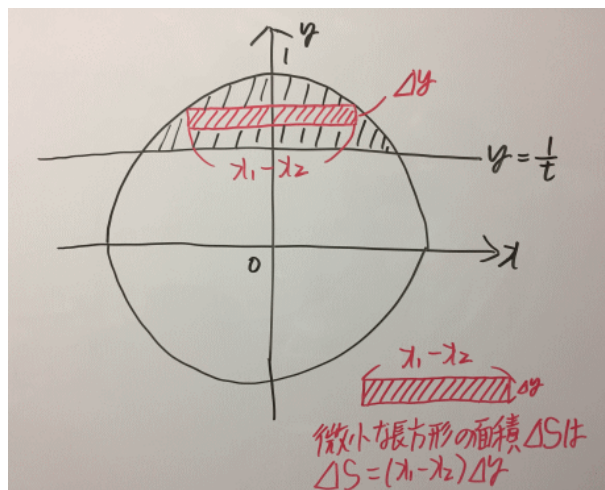 y
1
Δy
x₁-x₂
y=1/t
0
x
x₁-x₂
Δy
微小な長方形の面積ΔSは
ΔS=(x₁-x₂)Δy